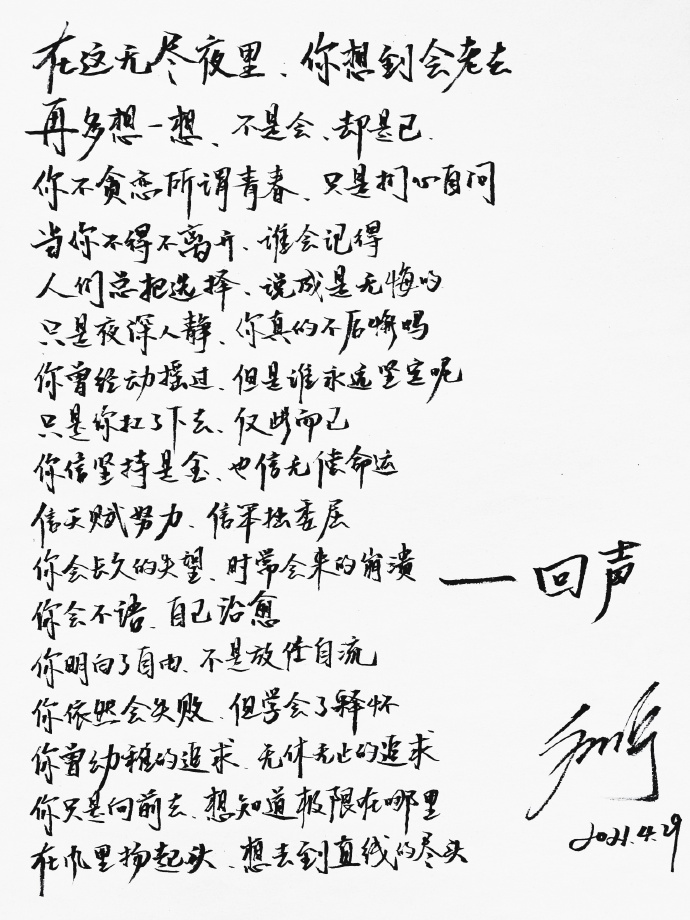 在这无尽夜里、你想到会老去
再多想一想、不是会、却是已.
你不贪恋所谓青春、只是扪心自问
当你不得不离开、谁会记得
人们总把选择、说成是无悔的
只是夜深人静、你真的不后悔吗
你曾经动摇过、但是谁永远坚定呢
只是你扛了下去、仅此而已
你信坚持是金、也信无偿命运
信天赋努力、信笨拙委屈
你会长久的失望、时常会来的崩溃
你会不语、自己治愈
你明白了自由、不是放任自流
你依然会失败、但学会了释怀
你曾幼稚的追求、无休无止的追求
你只是向前去、想知道极限在哪里
在风里扬起头、想去到直线的尽头
一回声
2021.4.29